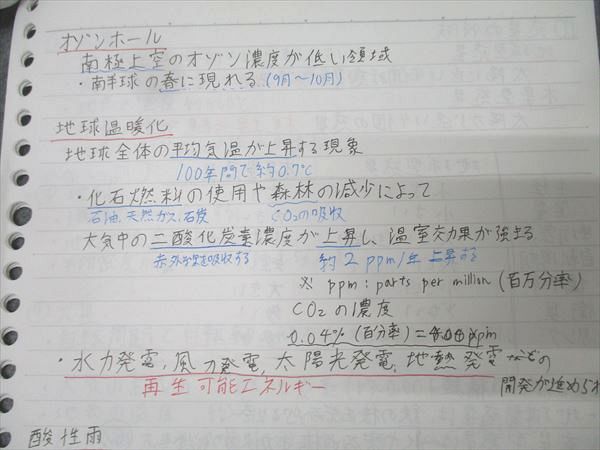 オゾンホール
南極上空のオゾン濃度が低い領域
・南半球の春に現れる(9月〜10月)
地球温暖化
地球全体の平均気温が上昇する現象
100年間で約0.7℃
・化石燃料の使用や森林の減少によって
石油、天然ガス、石炭 CO₂の吸収
大気中の二酸化炭素濃度が上昇し、温室効果が強まる
赤外線を吸収する 約2ppm/年上昇する
※ ppm : parts per million (百万分率)
CO₂の濃度
0.04% (百分率) = 400ppm
・水力発電、風力発電、太陽光発電、地熱発電などの
再生可能エネルギー 開発が進められ
酸性雨